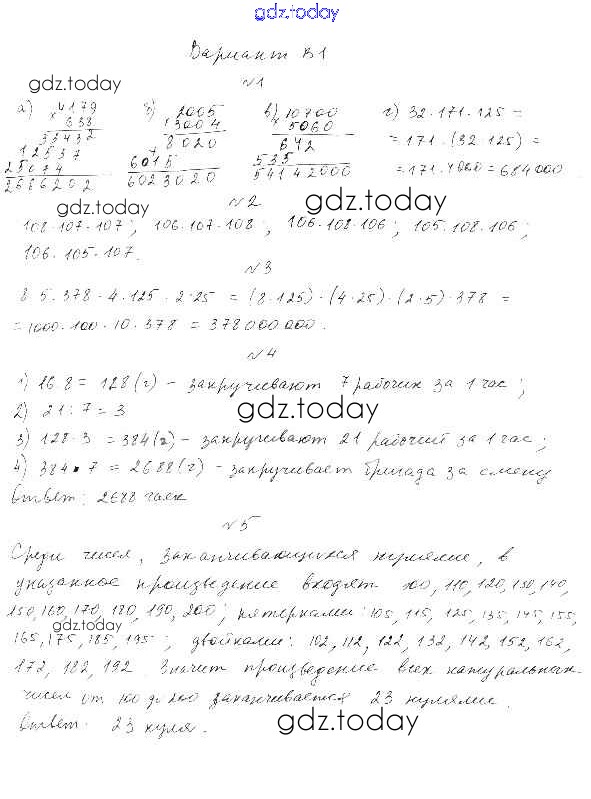 gdz.today
Вариант В1
№1
gdz.today
а) × 4179
638
33432
12537
25074
2686202
б) 2005
3004
8020
6015
6023020
в) 10700
5060
642
535
54142000
г) 32·171·125 =
= 171·(32·125) =
= 171·4000 = 684000.
№2
gdz.today
gdz.today
108·107·107; 106·107·108; 106·108·106; 105·108·106;
106·105·107.
№3
8·5·378·4·125·2·25 = (8·125)·(4·25)·(2·5)·378 =
= 1000·100·10·378 = 378000000.
№4
1) 16·8 = 128 (г) – закручивают 7 рабочих за 1 час;
2) 21:7 = 3
gdz.today
3) 128·3 = 384 (г) – закручивают 21 рабочий за 1 час;
4) 384·7 = 2688 (г) – закручивает бригада за смену
Ответ: 2688 гаек
№5
Среди чисел, заканчивающихся нулями, в
указанное произведение входят 100, 110, 120, 130, 140,
150, 160, 170, 180, 190, 200; пятерками: 105, 115, 125, 135, 145, 155,
gdz.today
165, 175, 185, 195; двойками: 102, 112, 122, 132, 142, 152, 162,
172, 182, 192. Значит произведение всех натуральных
чисел от 100 до 200 заканчивается 23 нулями.
Ответ: 23 нуля.
gdz.today